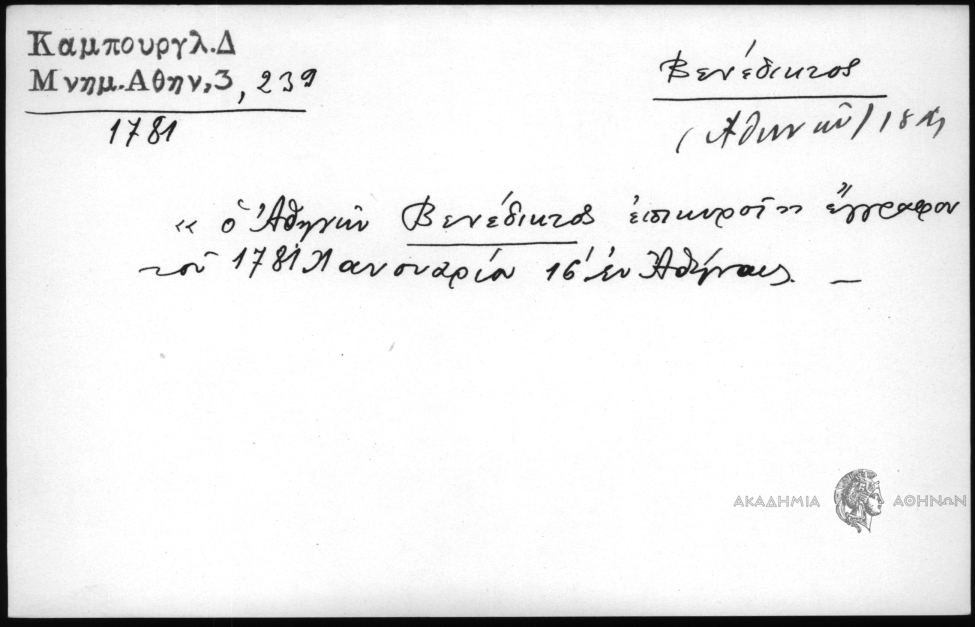 Καμπουργλ.Δ
Μνημ.Αθην,3, 239
1781
Βενέδικτος
(Ἀθηνῶν)
« ὁ Ἀθηνῶν Βενέδικτος ἐπικυροῖ» ἔγγραφον
τοῦ 1781 Ἰανουαρίου 16 ἐν Ἀθήναις. —
ΑΚΑΔΗΜΙΑ ΑΘΗΝΩΝ